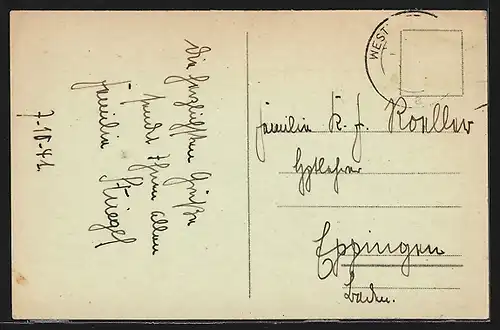 Die herzlichsten Grüße
sendet Ihnen allen
Familie Striegel
7-10-41
WEST
Familie K. F. Roeller
Hptlehrer
Eppingen
Baden.